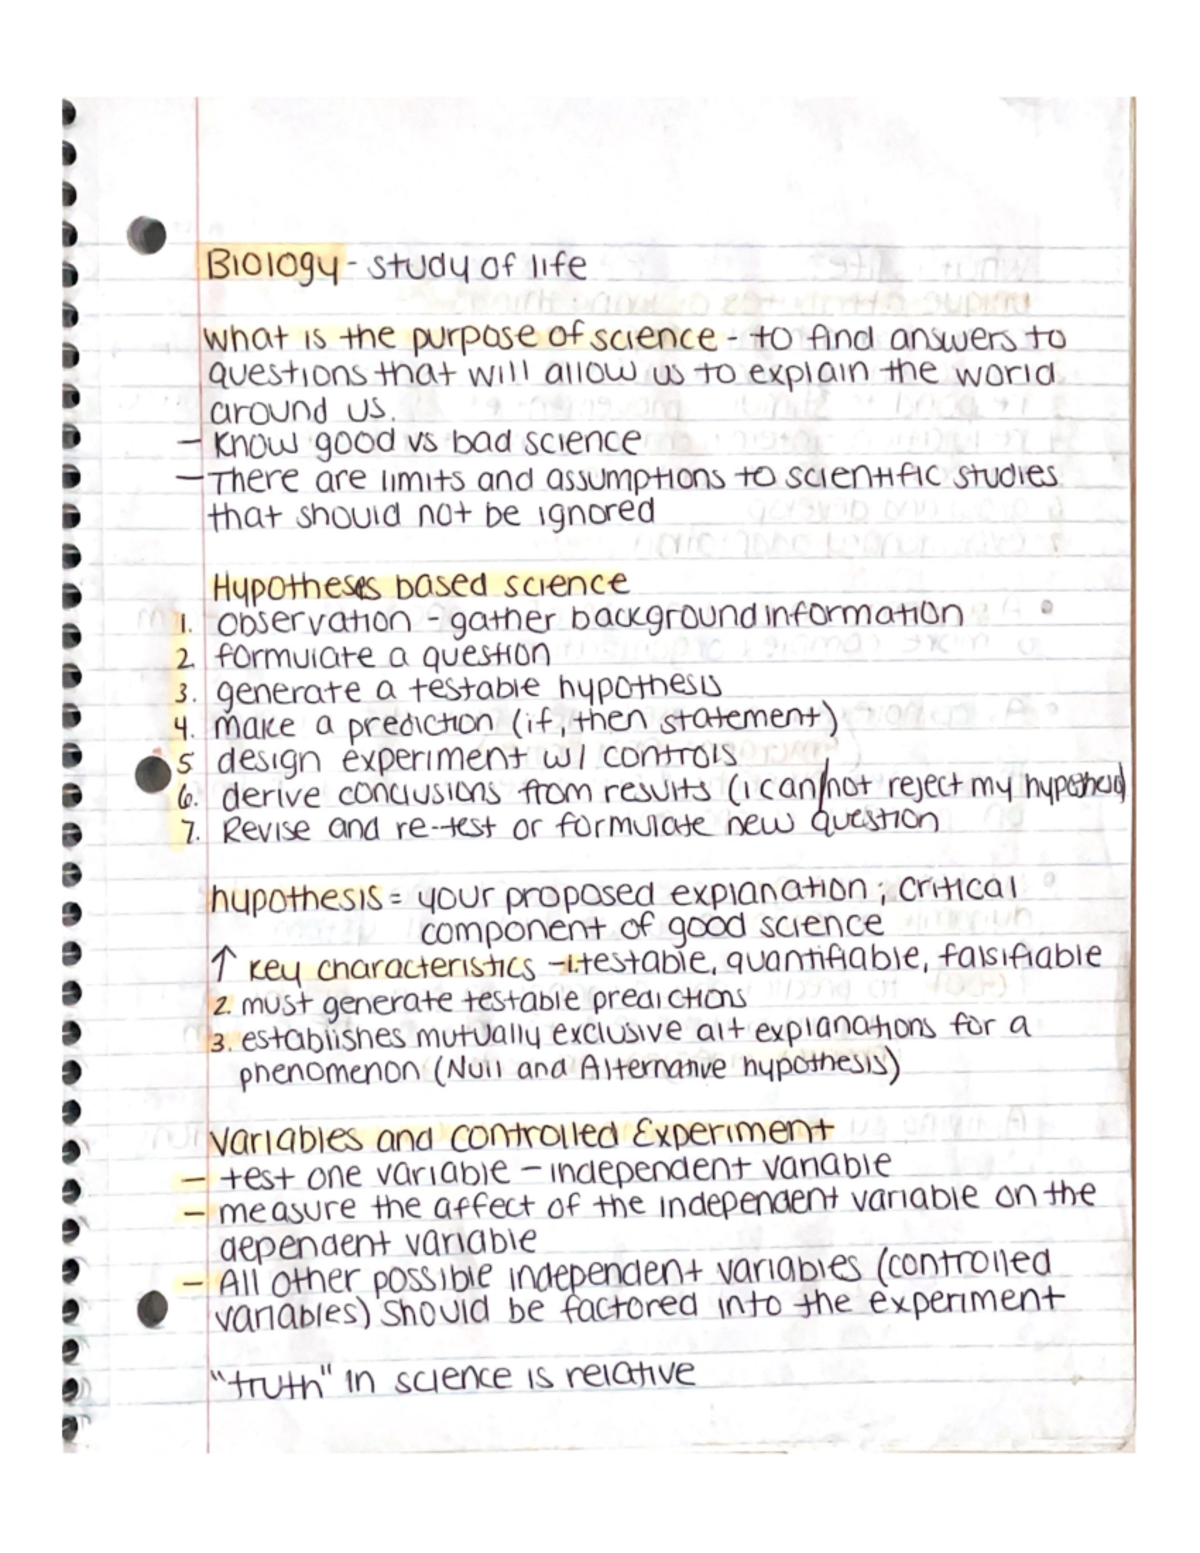 Biology - study of life
what is the purpose of science - to find answers to
questions that will allow us to explain the world
around us.
- Know good vs bad science
- There are limits and assumptions to scientific studies
that should not be ignored
Hypotheses based science
1. observation - gather background information
2. formulate a question
3. generate a testable hypothesis
4. make a prediction (if, then statement)
5. design experiment w/ controls
6. derive conclusions from results (i can/not reject my hypothesis)
7. Revise and re-test or formulate new question
hypothesis = your proposed explanation; critical
component of good science
↑ key characteristics - 1. testable, quantifiable, falsifiable
2. must generate testable predictions
3. establishes mutually exclusive alt explanations for a
phenomenon (Null and Alternative hypothesis)
Variables and controlled Experiment
- test one variable - independent variable
- measure the affect of the independent variable on the
dependent variable
- All other possible independent variables (controlled
variables) should be factored into the experiment
"truth" in science is relative